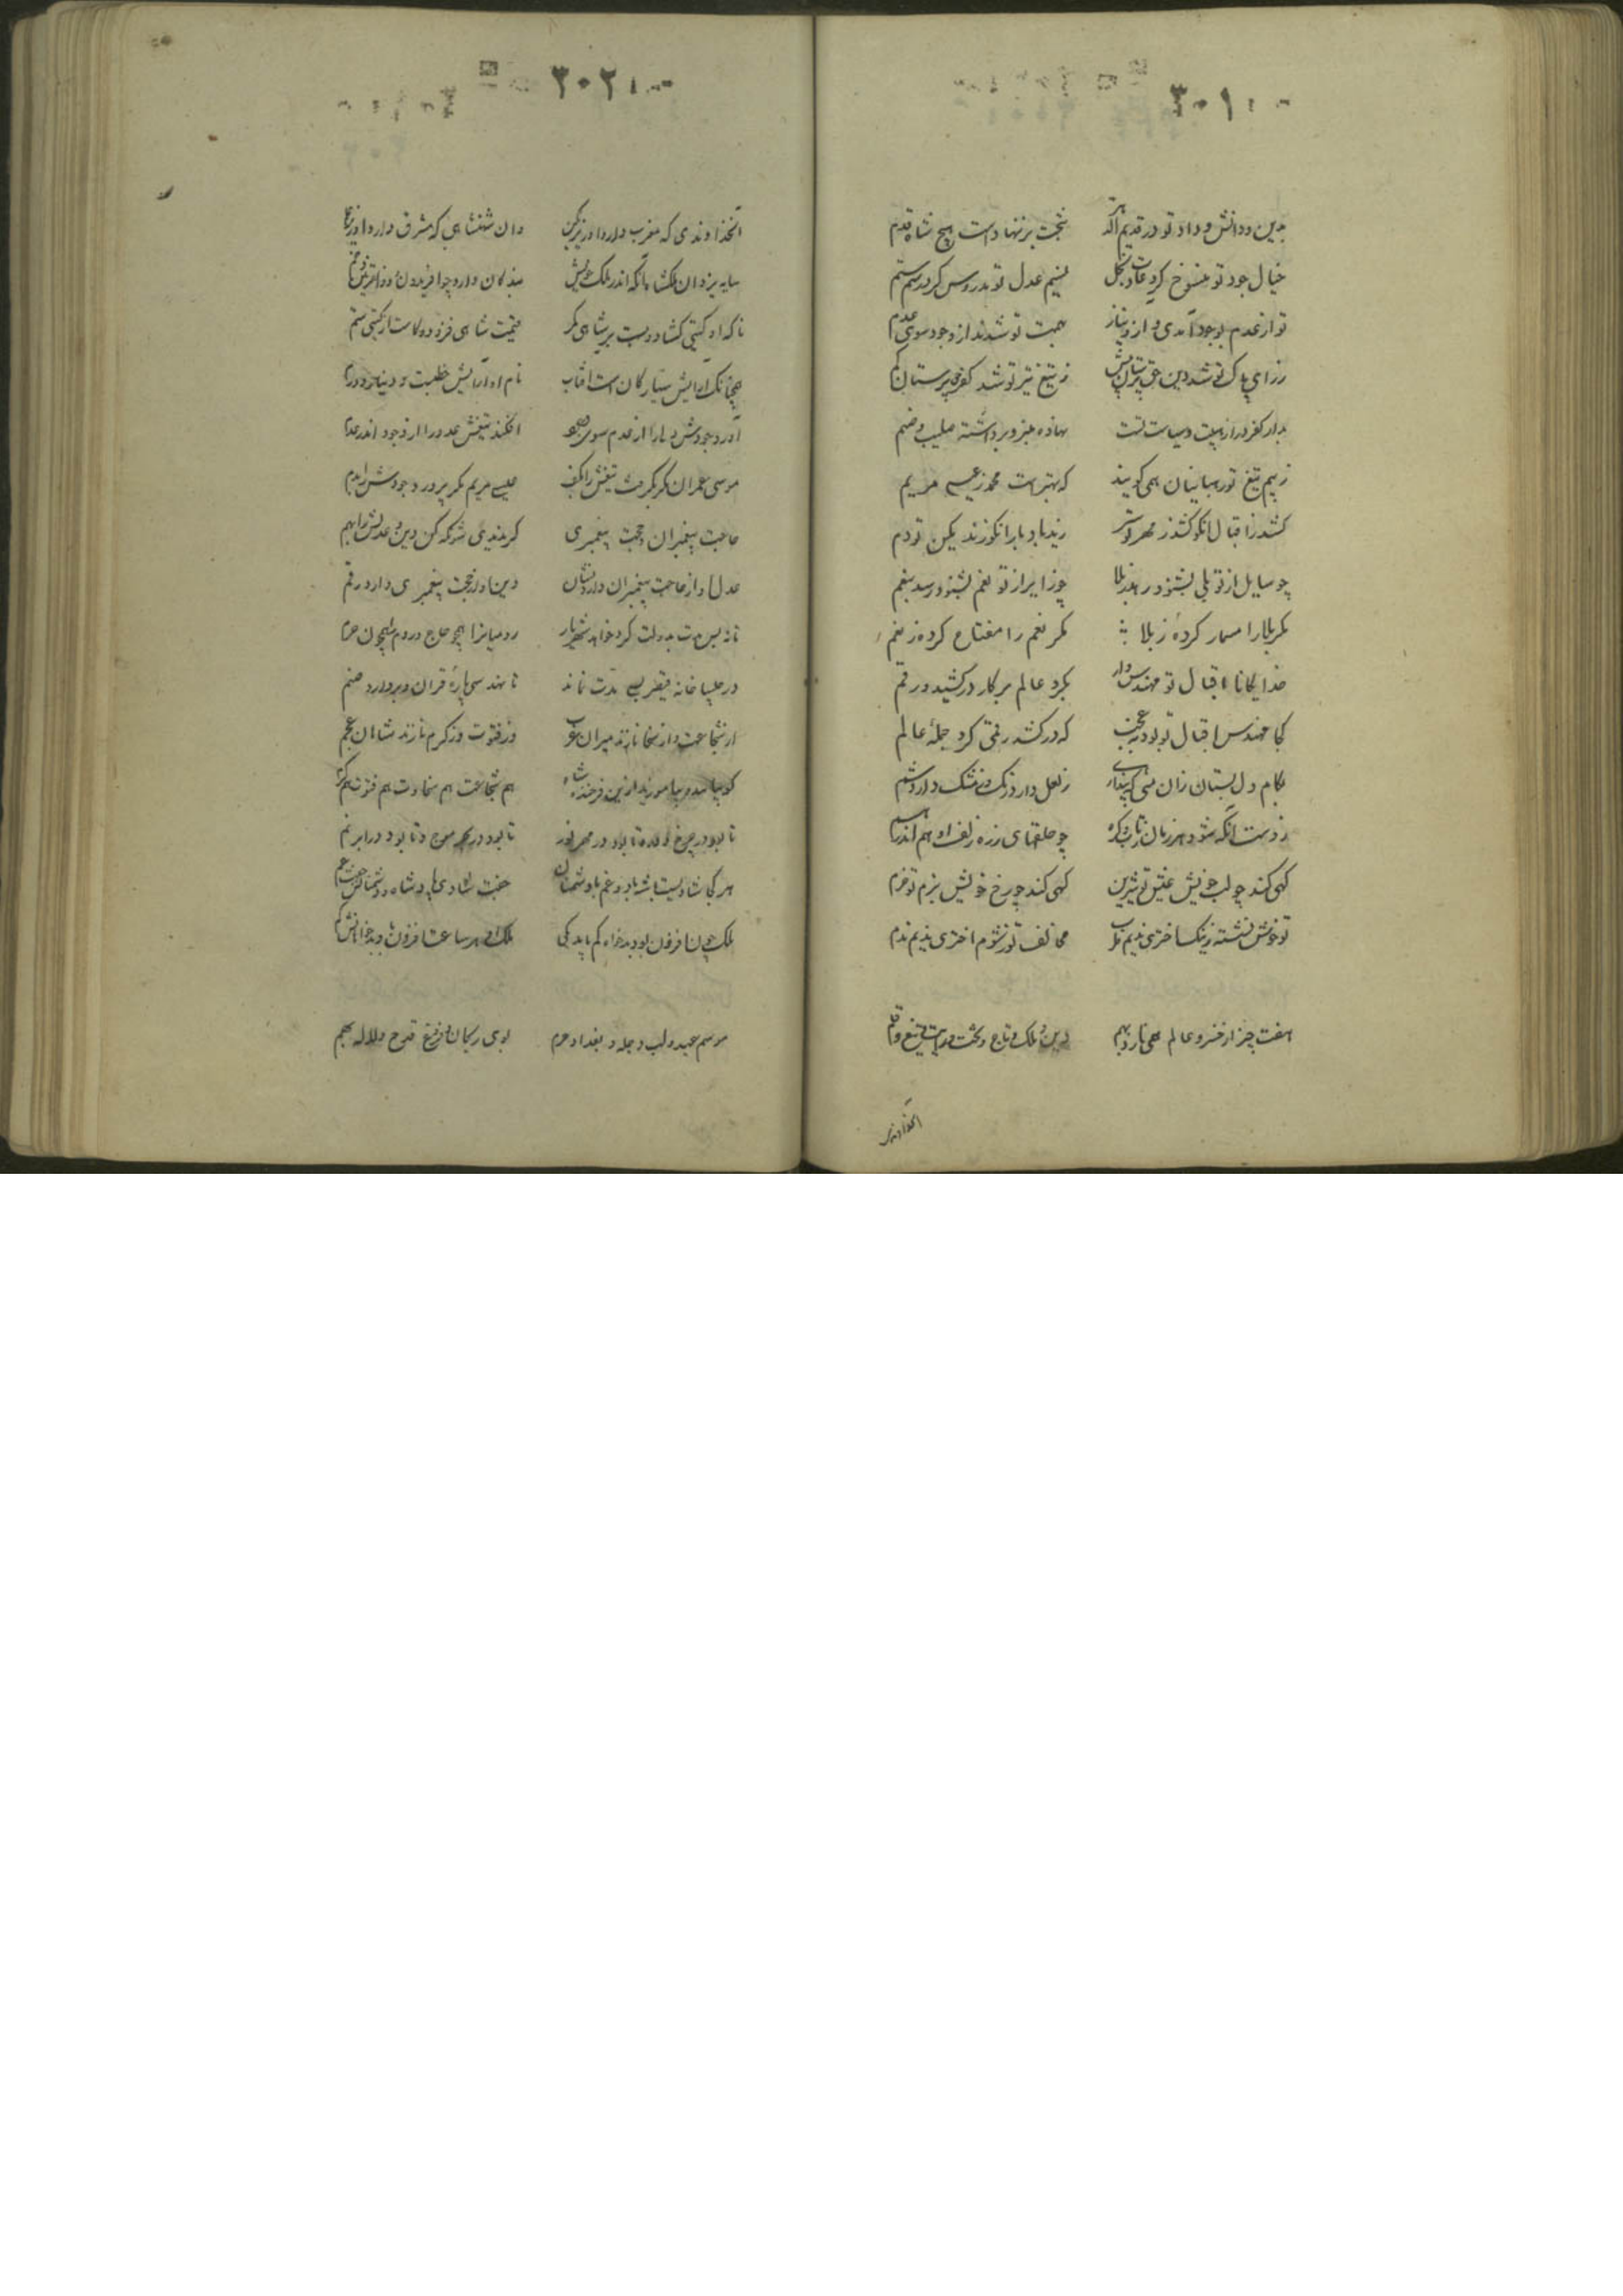 ۳۰۱
بدین و دانش و داد تو در قدیم اگر بتخت بر ننهادست هیچ شاه قدم
خیال جود تو منسوخ کرد عادت بخل نسیم عدل تو مدروس کرد رسم ستم
تو از عدم بوجود آمدی و از و نیاز بهیبت تو شدند از وجود سوی عدم
ز رای پاک تو شد دین ز تیغ تیز تو شد کفر
بدار کفر در از هیبت و سیاست تست نهاده منبر و برداشته صلیب و صنم
ز بیم تیغ تو رهبانیان همی گویند که بهترست محمد ز عیسی مریم
کشد ز اقبال آنکو کشد ز مهر تو سر زید باد بار آنکو زند بکین تو دم
چو سایل از تو بلی بشنود رهد ز بلا چو زایر از تو نعم بشنود رسد بنعم
مگر بلا را مسمار کردهٔ ز بلا مگر نعم را مفتاح کردهٔ ز نعم
خدایگانا اقبال تو مهندس وار بگرد عالم پرگار در کشید و رقم
کجا مهندس اقبال تو بود نه عجب که در کشد رقمی گرد جملهٔ عالم
بکام دل بستان زان می که پنداری ز لعل دارد رنگ و ز مشک دارد شم
ز دست آنکه شود هر زمان چو حلقهای زره زلف او هم اندر هم
کهی کند چو لب خویش عیش تو شیرین کهی کند چو رخ خویش بزم تو خرم
تو خوش نشسته ز نیک اختری ندیم طرب مخالف تو ز شوم اختری ندیم ندم
هفت چیز از خسرو عالم همی نازد بهم دین و ملک و تاج و تخت و رایت و تیغ و قلم
آنخداوندی
۳۰۲
آنخداوندی که مغرب دارد او زیر نگین وان شهنشاهی که مشرق دارد او زیر علم
سایه یزدان ملکشاه آنکه اندر ملک خویش بندگان دارد چو افریدون و ذوالقرنین و جم
تا که او گیتی گشادست بر شاهی کمر قیمت شاهی فزود و کاست از گیتی ستم
همچنانک آرایش سیارگان است آفتاب نام او آرایش خطبت و دینار و درم
آورد جودش را از عدم سوی وجود افکند تیغش عدو را از وجود اندر عدم
موسی عمران مگر بگرفت تیغش را بکف عیسی مریم مگر پرورد جودش را بدم
صاحب پیغمبران و حجت پیغمبری گر بدیدی شهرگه کن دین و عدلش را بهم
عدل او از صاحب پیغمبران دارد نشان دین او از حجت پیغمبری دارد رقم
تا نه بس مدت بدولت کرد خواهد شهریار رومیانرا همچو حاج و روم را همچون حرم
در چلیپا خانه قیصر بسی مدت نماند تا نهد سی پارهٔ قرآن و بردارد صنم
از شجاعت وز سخا نازند میران عرب وز فتوت وز کرم نازند شاهان عجم
گو بیایید و بیاموزید ازین فرخنده شاه هم شجاعت هم سخاوت هم فتوت هم کرم
تا بود در چرخ دور و تا بود در مهر نور تا بود در بحر موج و تا بود در ابر نم
هر کجا شادیست با شه باد و غم با دشمنان جفت شادی باد شاه و دشمنانش جفت غم
ملک چون افزون بود بدخواه کم باید همی ملک او هر ساعت افزون باد و بدخواهانش کم
موسم عید و لب دجله و بغداد و حرم بوی ریحان و فروغ قدح و لاله بهم